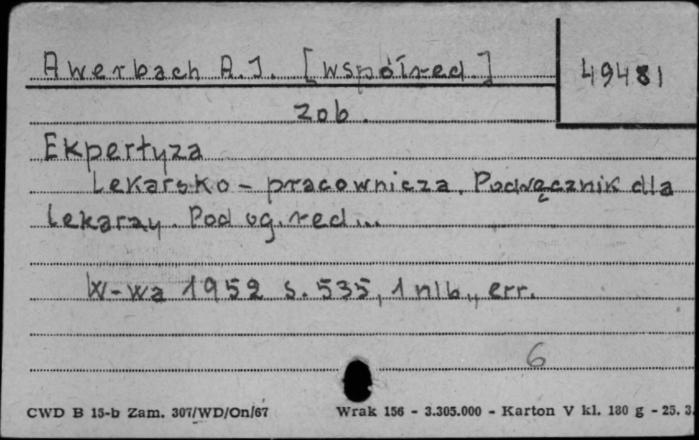 Awerbach A.J. [współred.] 49481
zob.
Ekpertyza
Lekarsko - pracownicza. Podręcznik dla
lekarzy. Pod og. red...
W-wa 1952 s. 535, 1 nlb., err.
6
CWD B 15-b Zam. 307/WD/On/67 Wrak 156 - 3.305.000 - Karton V kl. 180 g - 25. 3.